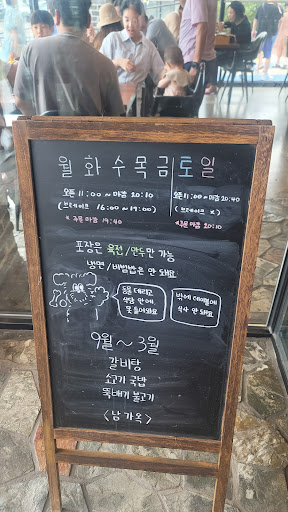 월 화 수 목 금 토 일
오픈 11:00 ~ 마감 20:10
(브레이크 16:00 ~ 17:00)
* 주문 마감 19:40
오픈 11:00 ~ 마감 20:40
(브레이크 X)
* 주문 마감 20:10
포장은 육전/만두만 가능
냉면/비빔밥은 안 돼요
동물 데리고
식당 안에
못 들어와요
밖에 테이블에
식사 안 돼요.
9월 ~ 3월
갈비탕
소고기 국밥
뚝배기 불고기
<남가옥>